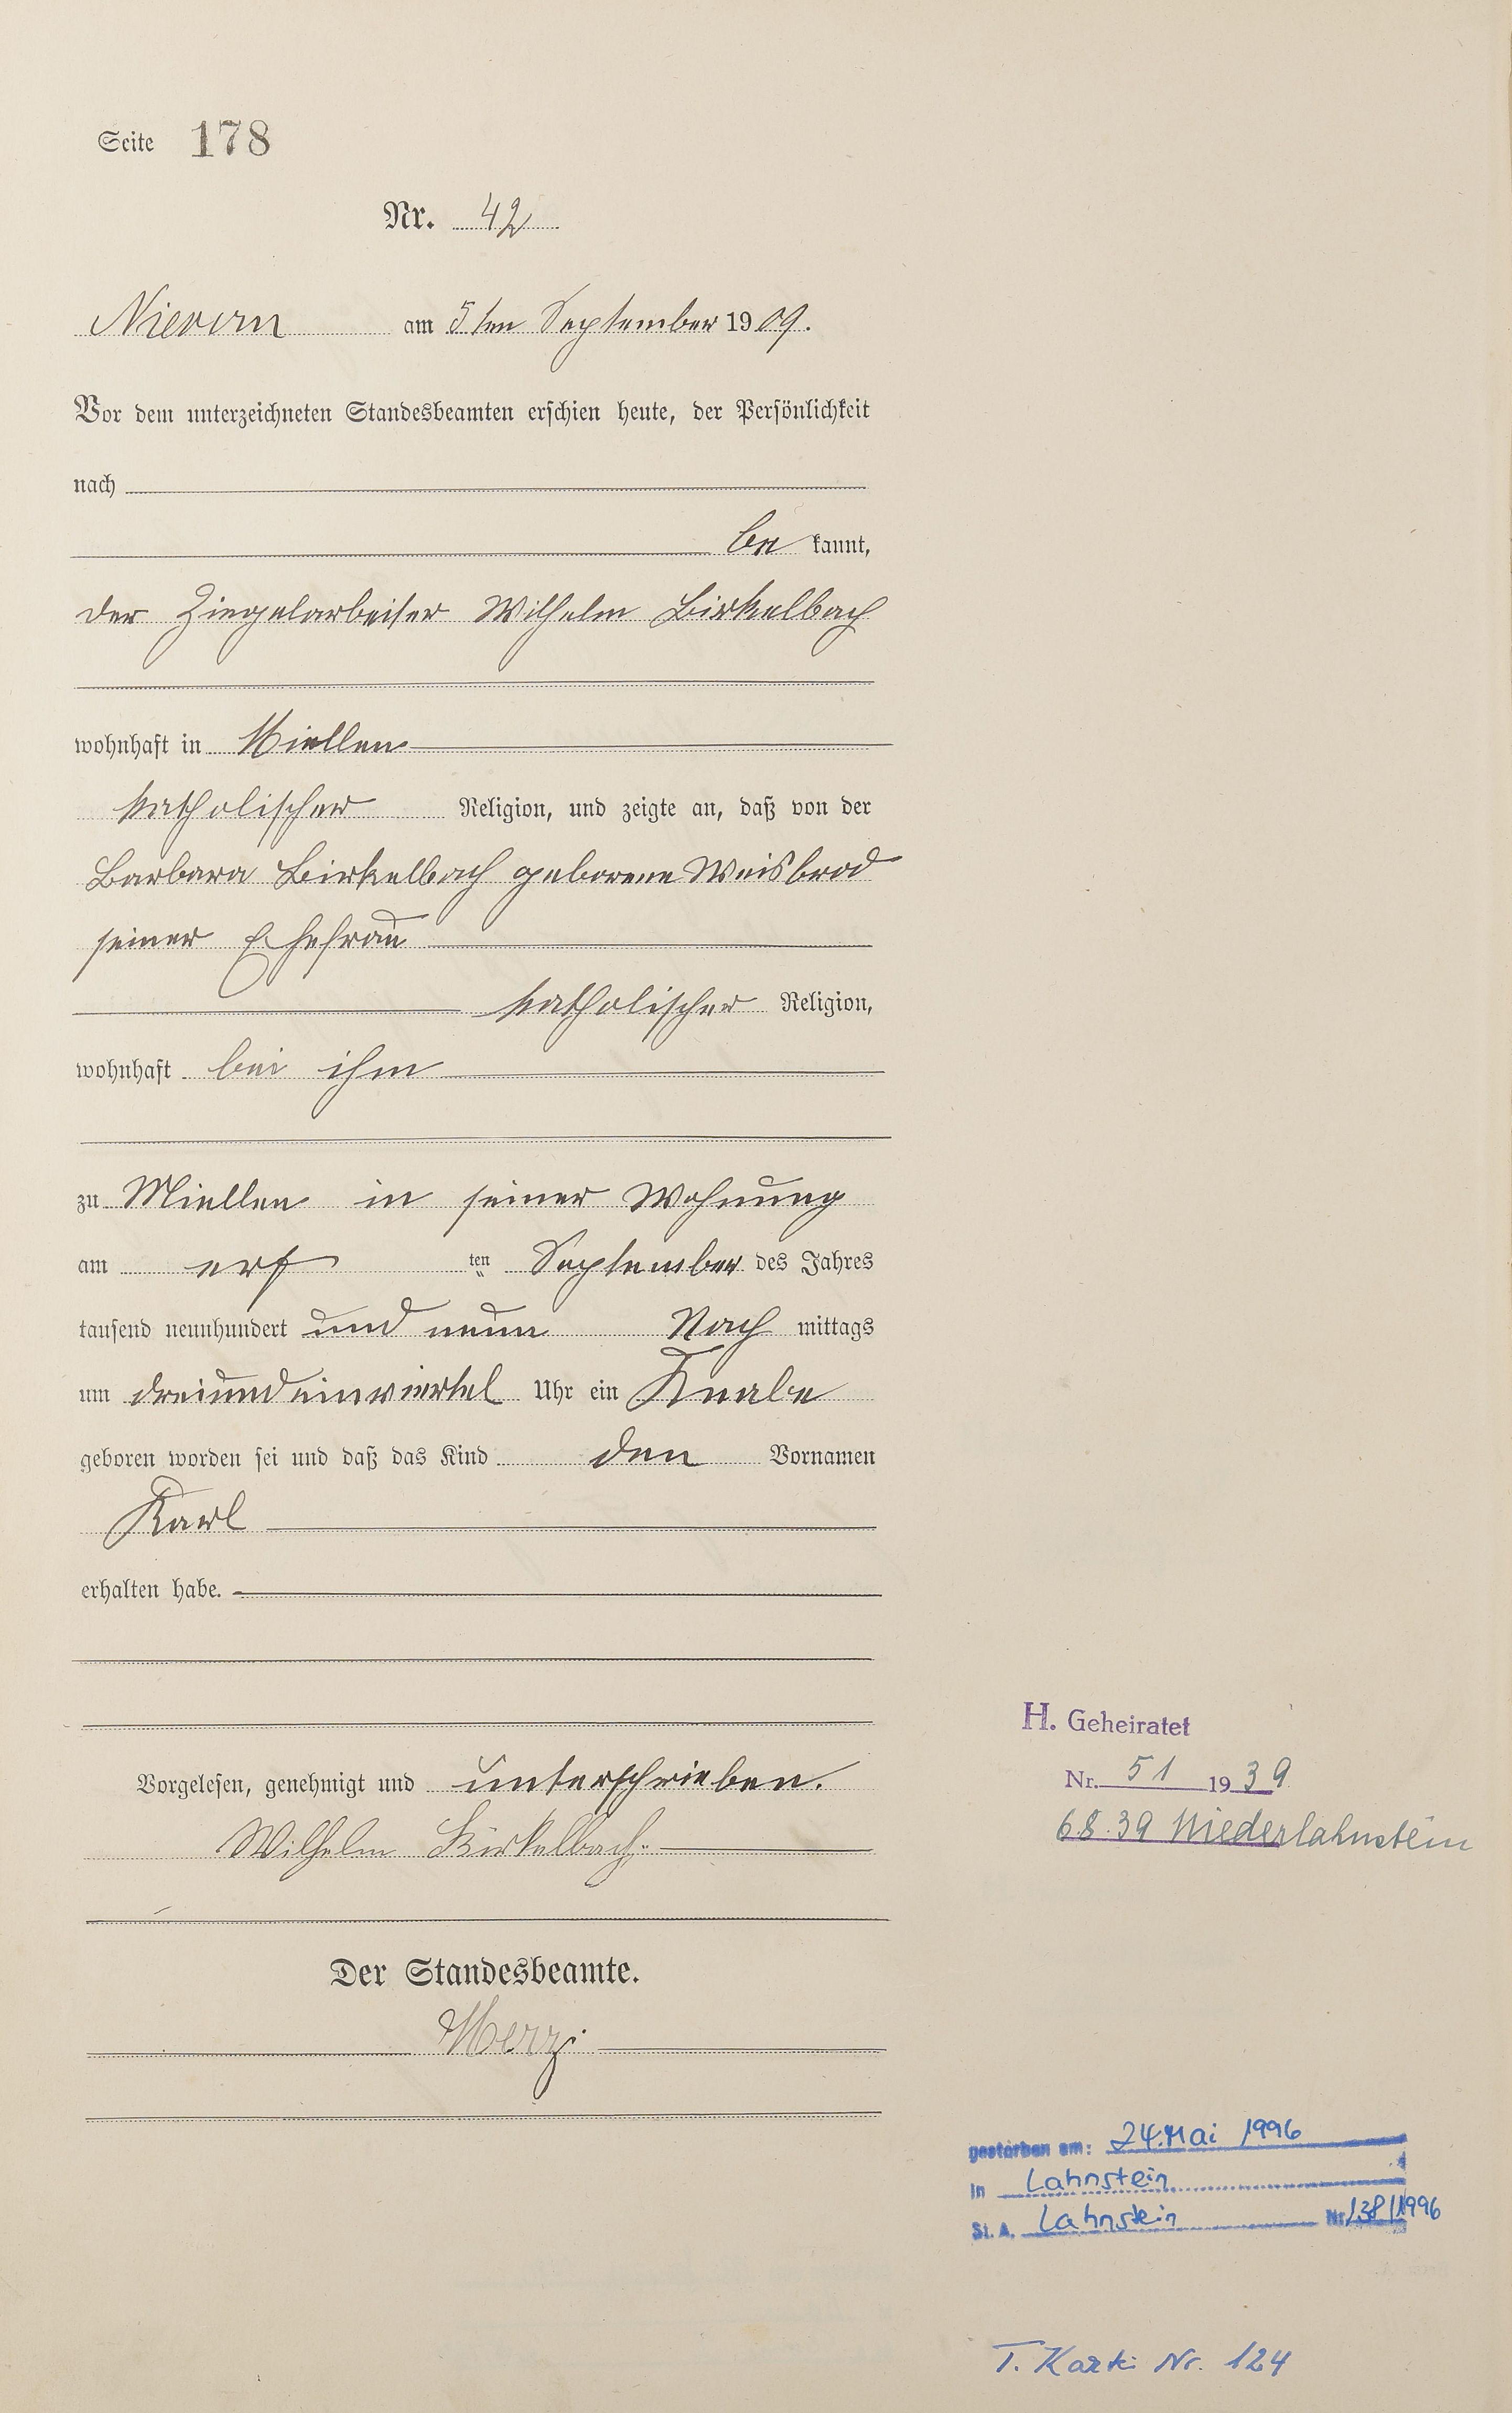 Seite 178
Nr. 42
Nievern am 5ten September 1909.
Vor dem unterzeichneten Standesbeamten erschien heute, der Persönlichkeit
nach
be kannt,
der Ziegelarbeiter Wilhelm Birkelbach
wohnhaft in Miellen
katholischer Religion, und zeigte an, daß von der
Barbara Birkelbach geborene Weisbrod
seiner Ehefrau
katholischer Religion,
wohnhaft bei ihm
zu Miellen in seiner Wohnung
am ten September des Jahres
tausend neunhundert und neun Nach mittags
um dreiundeinviertel Uhr ein Knabe
geboren worden sei und daß das Kind den Vornamen
Karl
erhalten habe.
Vorgelesen, genehmigt und unterschrieben.
Wilhelm Birkelbach
Der Standesbeamte.
Merz
H. Geheiratet
Nr. 51 1939
6.8.39 Niederlahnstein
gestorben am: 24. Mai 1996
in Lahnstein
St. A. Lahnstein Nr. 138/1996
T. Karte Nr. 124